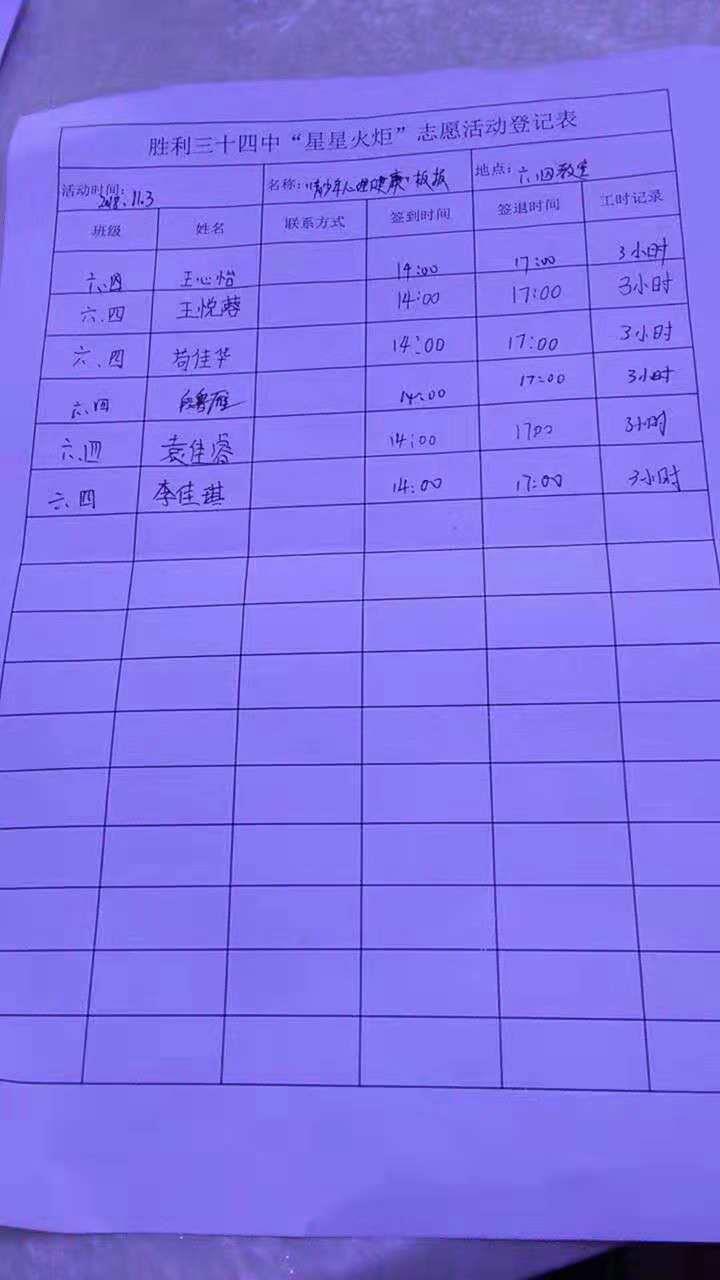 胜利三十四中“星星火炬”志愿活动登记表
活动时间：2018.11.3 名称：“青少年心理健康”板报 地点：六.四教室
班级 姓名 联系方式 签到时间 签退时间 工时记录
六.四 王心怡 14:00 17:00 3小时
六.四 王悦蓉 14:00 17:00 3小时
六.四 苟佳华 14:00 17:00 3小时
六.四 14:00 17:00 3小时
六.四 袁佳睿 14:00 17:00 3小时
六.四 李佳琪 14:00 17:00 3小时